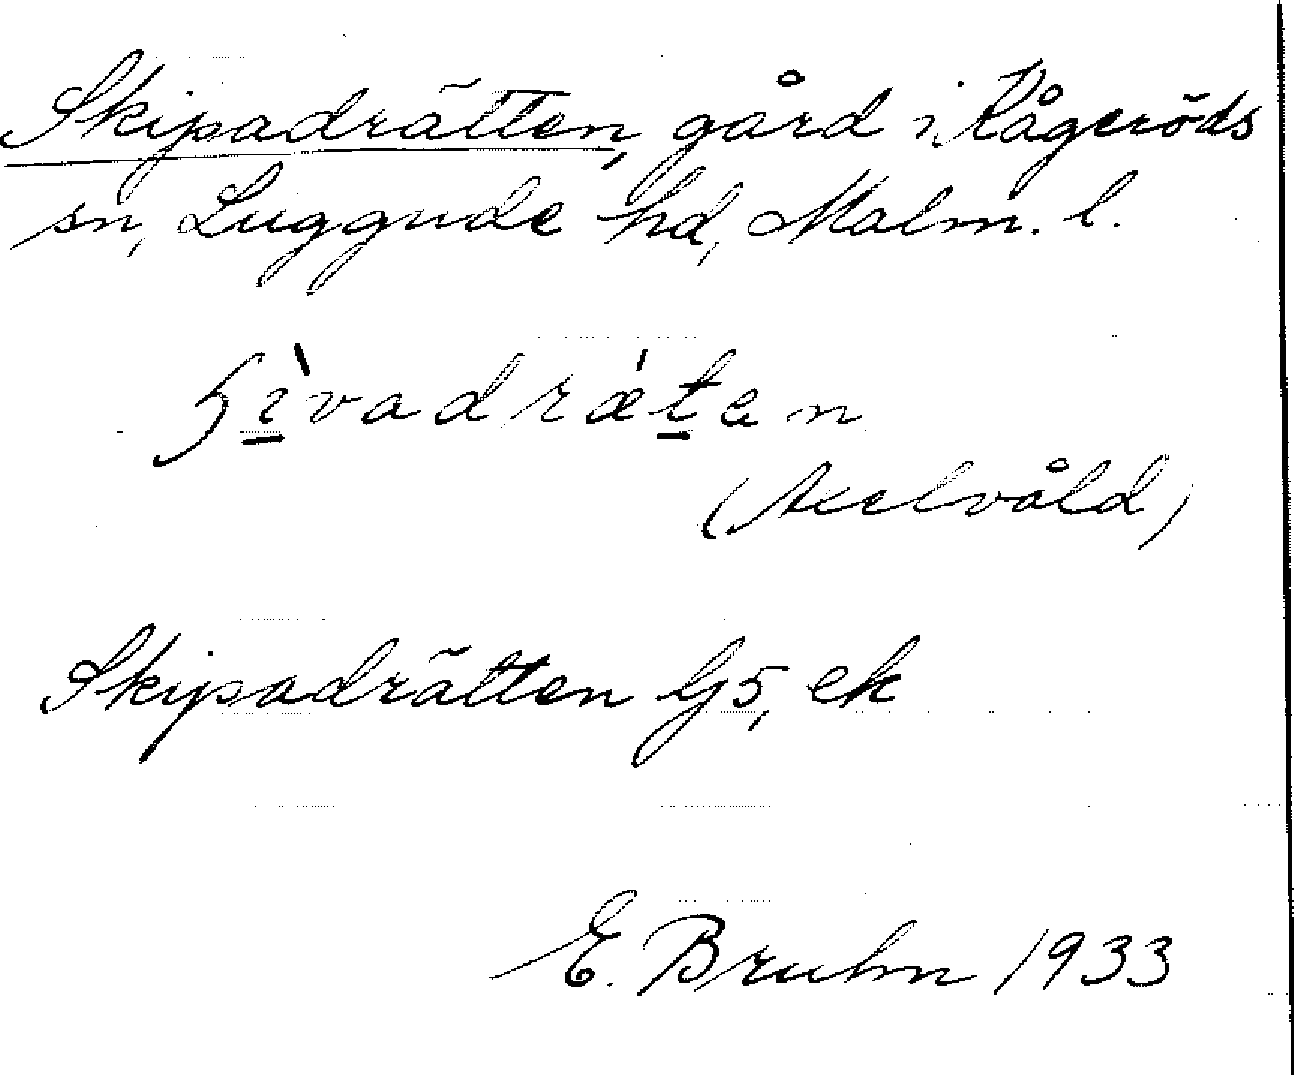 Skipadrätten, gård i Kågeröds
sn, Luggude hd, Malm. l.
ɧì̱vadrǽṯen
(Axelvåld)
Skipadrätten G5, ek
E. Bruhn 1933